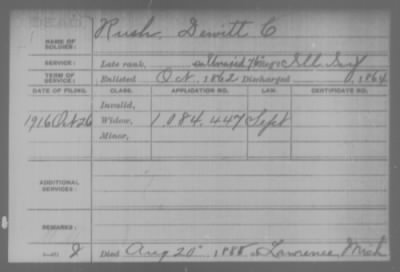 DEAD
NAME OF SOLDIER: Rush, Dewitt C
SERVICE: Late rank, Ill. Inf
TERM OF SERVICE: Enlisted Oct, 1862 Discharged , 1864
DATE OF FILING. CLASS. APPLICATION NO. LAW. CERTIFICATE NO.
Invalid,
1916 Oct 26 Widow, 1.084.447 Sept
Minor,
ADDITIONAL SERVICES:
REMARKS:
Died Aug 20", 1888, at Lawrence, Mich